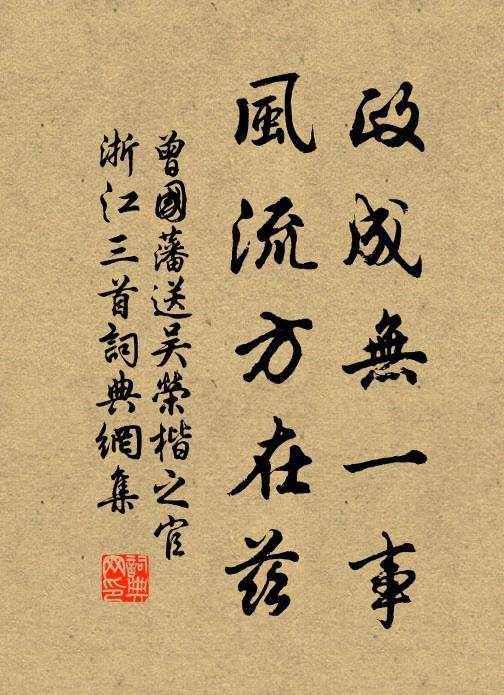 政成無一事
風流方在茲
曾國藩送吳榮楷之官
浙江三首詞典網集
詞典
网印